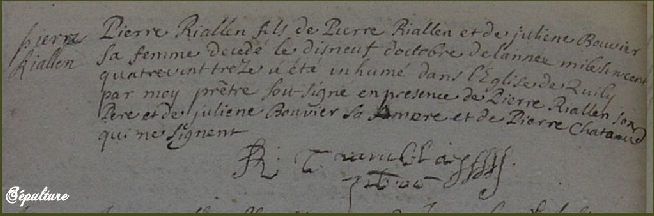 pierre
Riallen
Pierre Riallen fils de Pierre Riallen et de juliene Bouvier
sa femme decedé le disneuf doctobre de lannee mil sincent
quatrevint treze a été inhumé dans l'Eglise de Quily
par moy prêtre sousigné en presence de Pierre Riallen son
Pere et de juliene Bouvier sa mere et de Pierre
qui ne signent
Sépulture